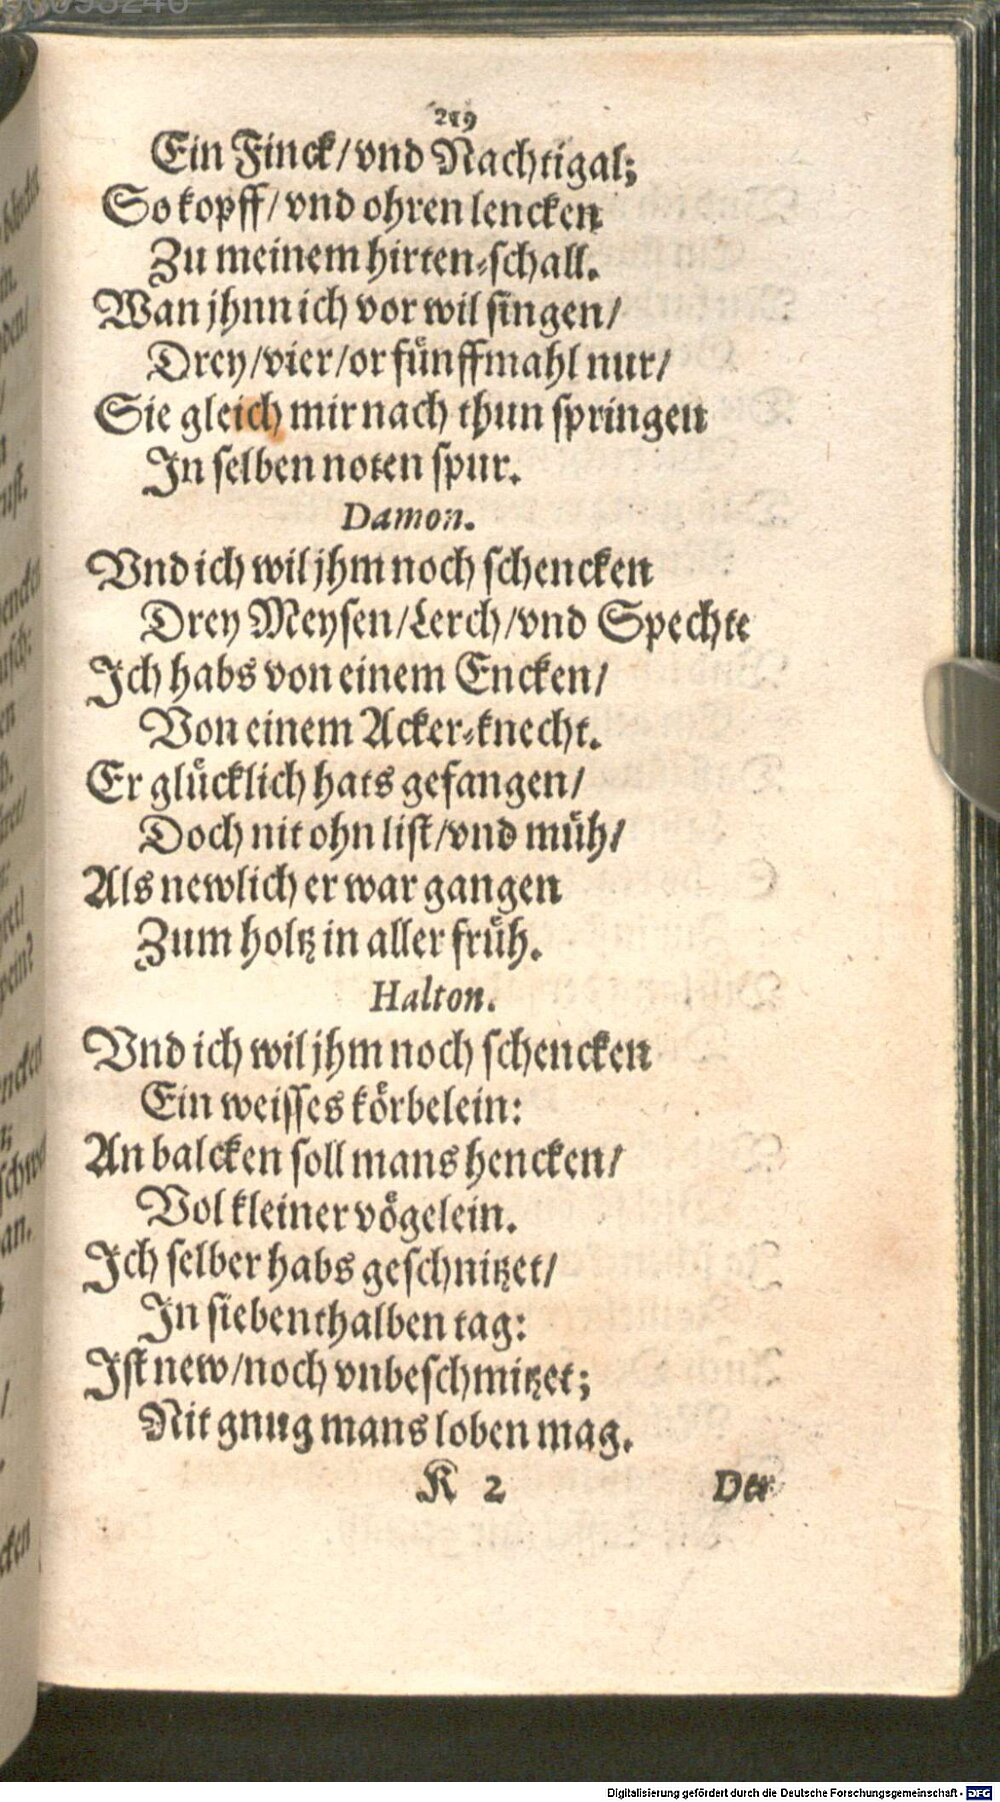 219
Ein Finck/ vnd Nachtigal;
So kopff/ vnd ohren lencken
Zu meinem hirten-schall.
Wan jhnn ich vor wil singen/
Drey/vier/or fünffmahl nur/
Sie gleich mir nach thun springen
In selben noten spur.
Damon.
Vnd ich wil jhm noch schencken
Drey Meysen/Lerch/vnd Spechte
Ich habs von einem Encken/
Von einem Acker-knecht.
Er glücklich hats gefangen/
Doch nit ohn list/vnd müh/
Als newlich er war gangen
Zum holtz in aller früh.
Halton.
Vnd ich wil jhm noch schencken
Ein weisses körbelein:
An balcken soll mans hencken/
Vol kleiner vögelein.
Ich selber habs geschnitzet/
In siebenthalben tag:
Ist new/noch vnbeschmitzet;
Nit gnug mans loben mag.
K 2 Der
Digitalisierung gefördert durch die Deutsche Forschungsgemeinschaft - DFG